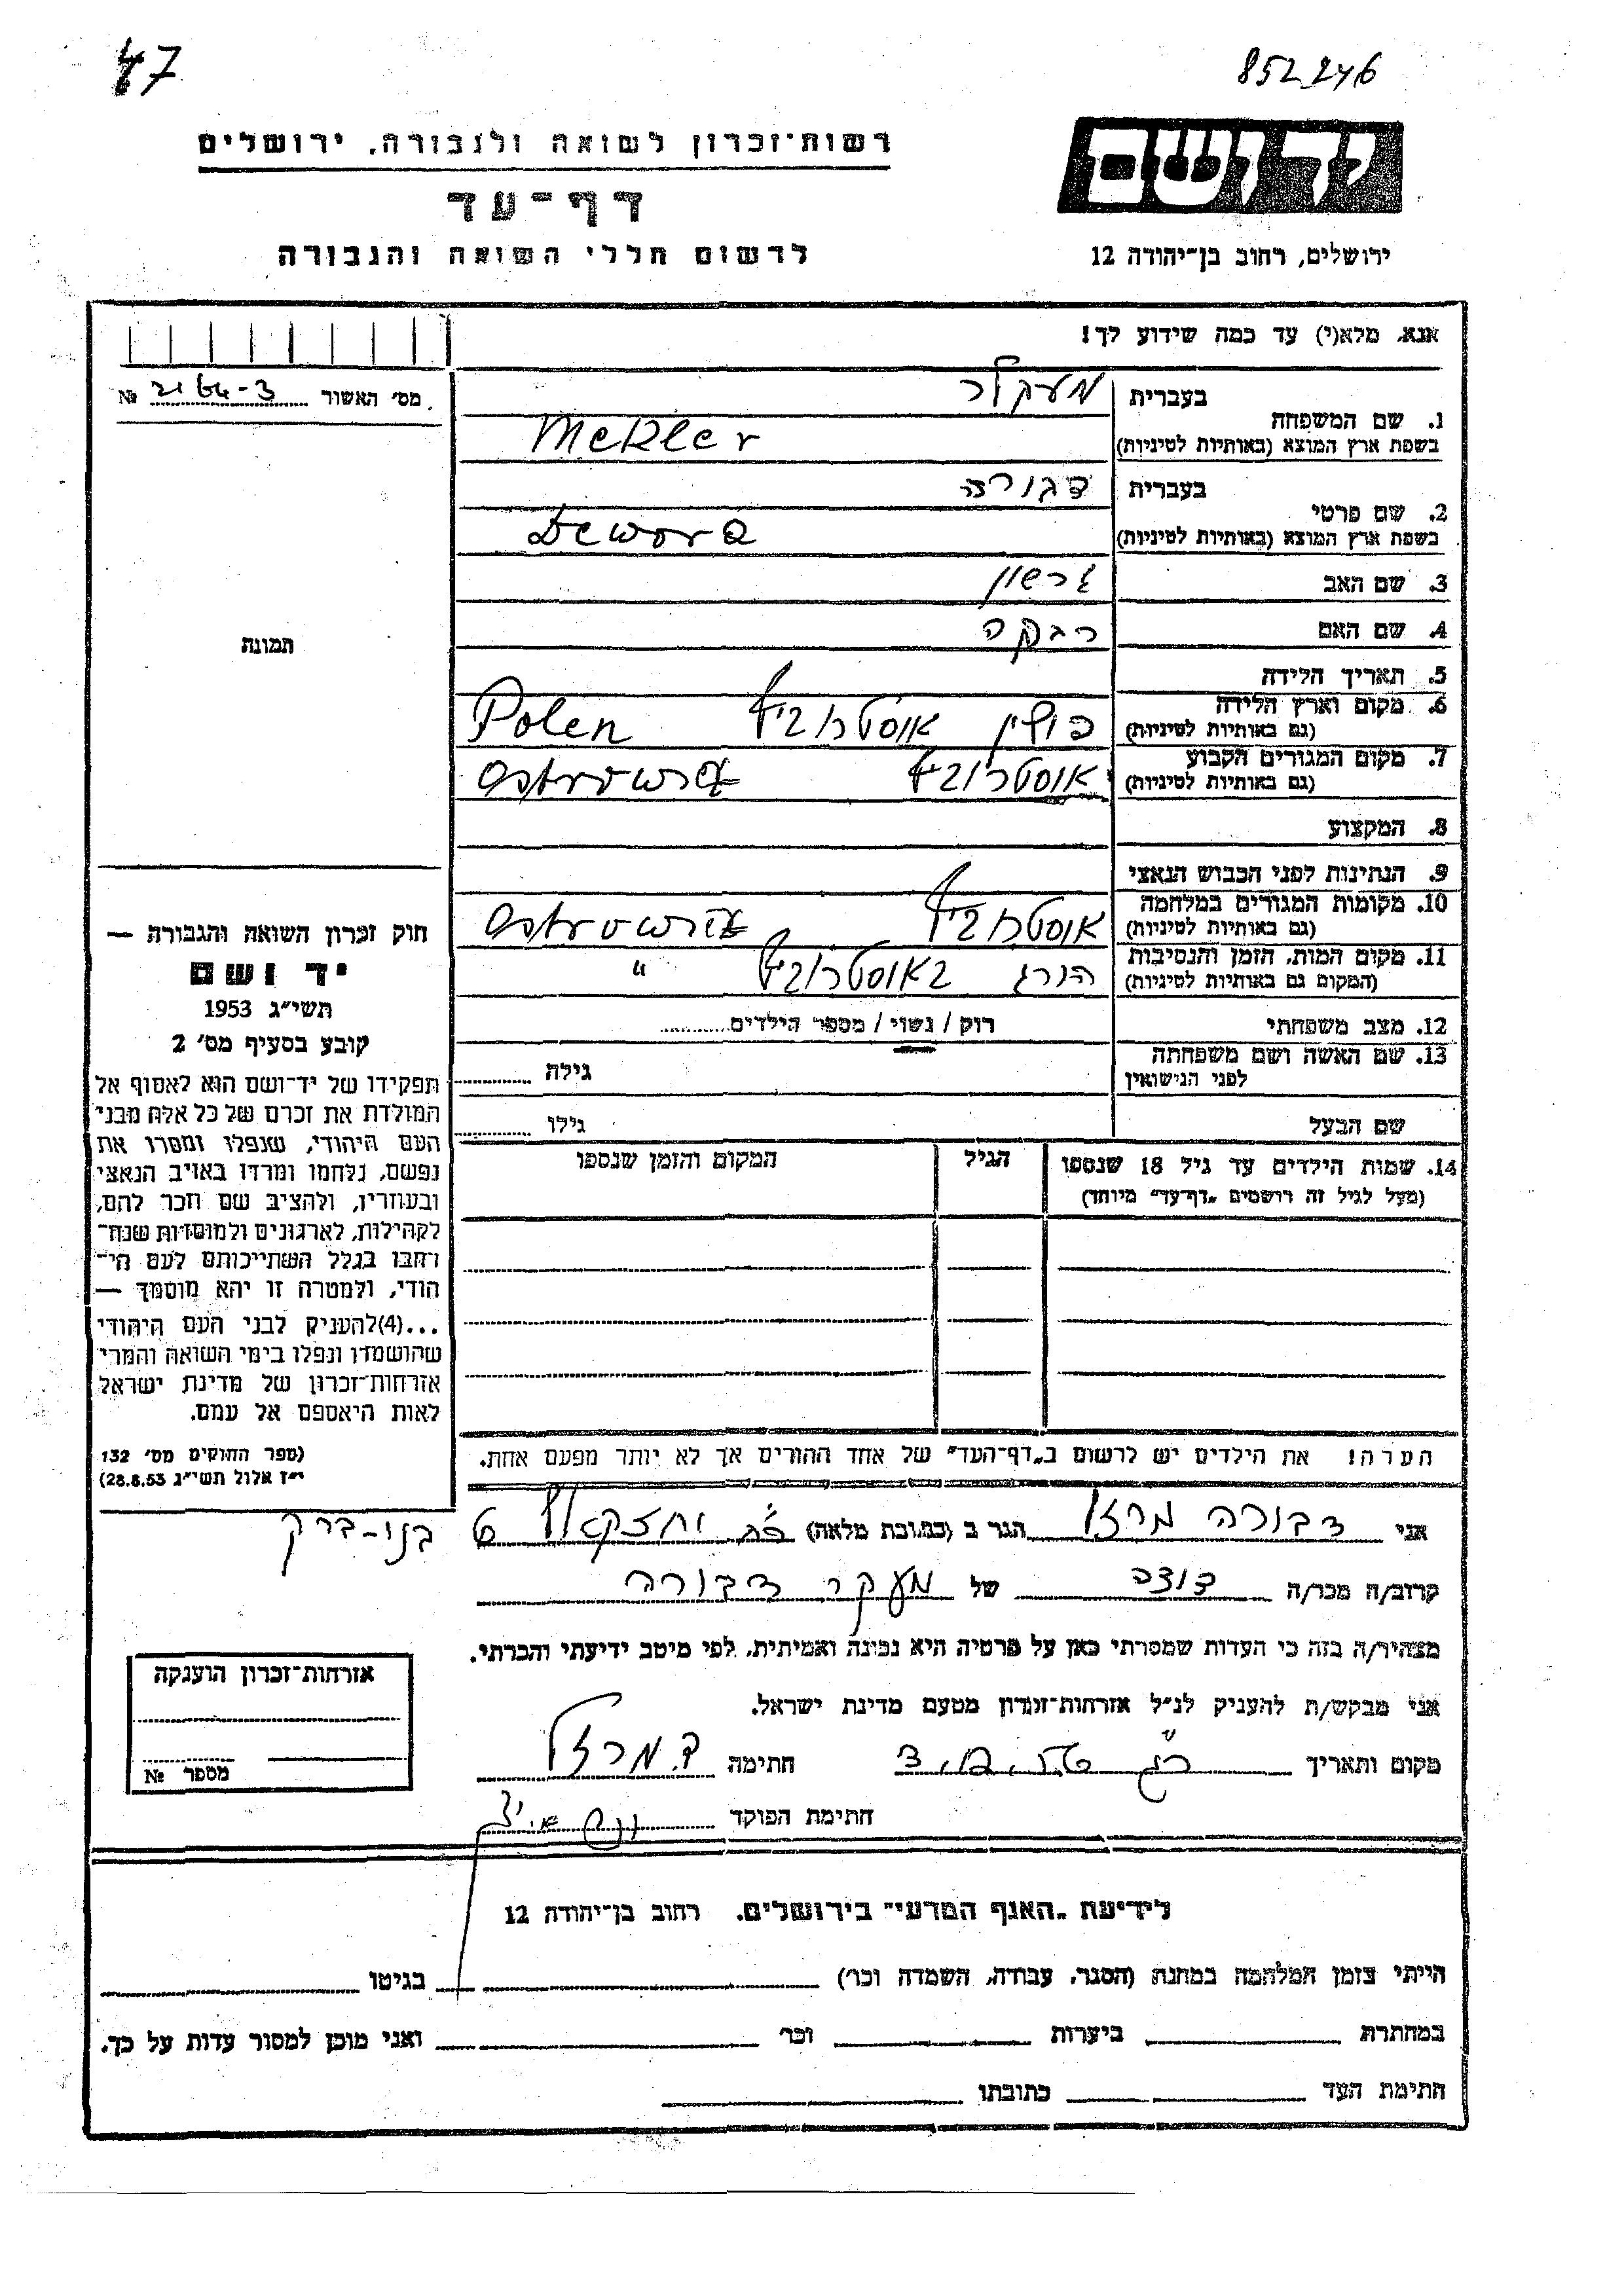 47
852246
רשות־זכרון לשואה ולגבורה, ירושלים
דף־עד
לרשום חללי השואה והגבורה
יד ושם
ירושלים, רחוב בן־יהודה 12
אנא, מלא(י) עד כמה שידוע לך!
מס׳ האשור № 2166-3
1. שם המשפחה
בעברית מעקלר
בשפת ארץ המוצא (באותיות לטיניות) Mekler
2. שם פרטי
בעברית דבורה
בשפת ארץ המוצא (באותיות לטיניות) Dewora
3. שם האב גרשון
4. שם האם רבקה
5. תאריך הלידה
6. מקום וארץ הלידה
(גם באותיות לטיניות) פולין אוסטרובץ Polen
7. מקום המגורים הקבוע
(גם באותיות לטיניות) אוסטרוביץ
8. המקצוע
9. הנתינות לפני הכבוש הנאצי
10. מקומות המגורים במלחמה
(גם באותיות לטיניות) אוסטרוביץ
11. מקום המות, הזמן והנסיבות
(המקום גם באותיות לטיניות) באוסטרוביץ "
12. מצב משפחתי רווק / נשוי / מספר הילדים
13. שם האשה ושם משפחתה
לפני הנישואין גילה
שם הבעל גילו
14. שמות הילדים עד גיל 18 שנספו
(מעל לגיל זה רושמים „דף־עד״ מיוחד)
הגיל
המקום והזמן שנספו
הערה! את הילדים יש לרשום ב„דף־העד״ של אחד ההורים אך לא יותר מפעם אחת.
תמונה
חוק זכרון השואה והגבורה —
יד ושם
תשי״ג 1953
קובע בסעיף מס׳ 2
תפקידו של יד־ושם הוא לאסוף אל
המולדת את זכרם של כל אלה מבני
העם היהודי, שנפלו ומסרו את
נפשם, נלחמו ומרדו באויב הנאצי
ובעוזריו, ולהציב שם וזכר להם,
לקהילות, לארגונים ולמוסדות שנח־
רבו בגלל השתייכותם לעם הי־
הודי, ולמטרה זו יהא מוסמך —
...(4)להעניק לבני העם היהודי
שהושמדו ונפלו בימי השואה והמרי
אזרחות־זכרון של מדינת ישראל
לאות היאספם אל עמם.
(ספר החוקים מס׳ 132
י״ז אלול תשי״ג 28.8.53)
אני דבורה מרזל הגר ב (כתובת מלאה) יחזקאל 6 בני-ברק
קרוב/ה מכר/ה דודה של מעקלר דבורה
מצהיר/ה בזה כי העדות שמסרתי כאן על פרטיה היא נכונה ואמיתית, לפי מיטב ידיעתי והכרתי.
אני מבקש/ת להעניק לנ״ל אזרחות־זכרון מטעם מדינת ישראל.
מקום ותאריך חתימה ד. מרזל
חתימת הפוקד
אזרחות־זכרון הוענקה
מספר №
לידיעת „האגף המדעי״ בירושלים, רחוב בן־יהודה 12
הייתי בזמן המלחמה במחנה (הסגר, עבודה, השמדה וכו׳) בגיטו
במחתרת ביערות וכו׳ ואני מוכן למסור עדות על כך.
חתימת העד כתובתו